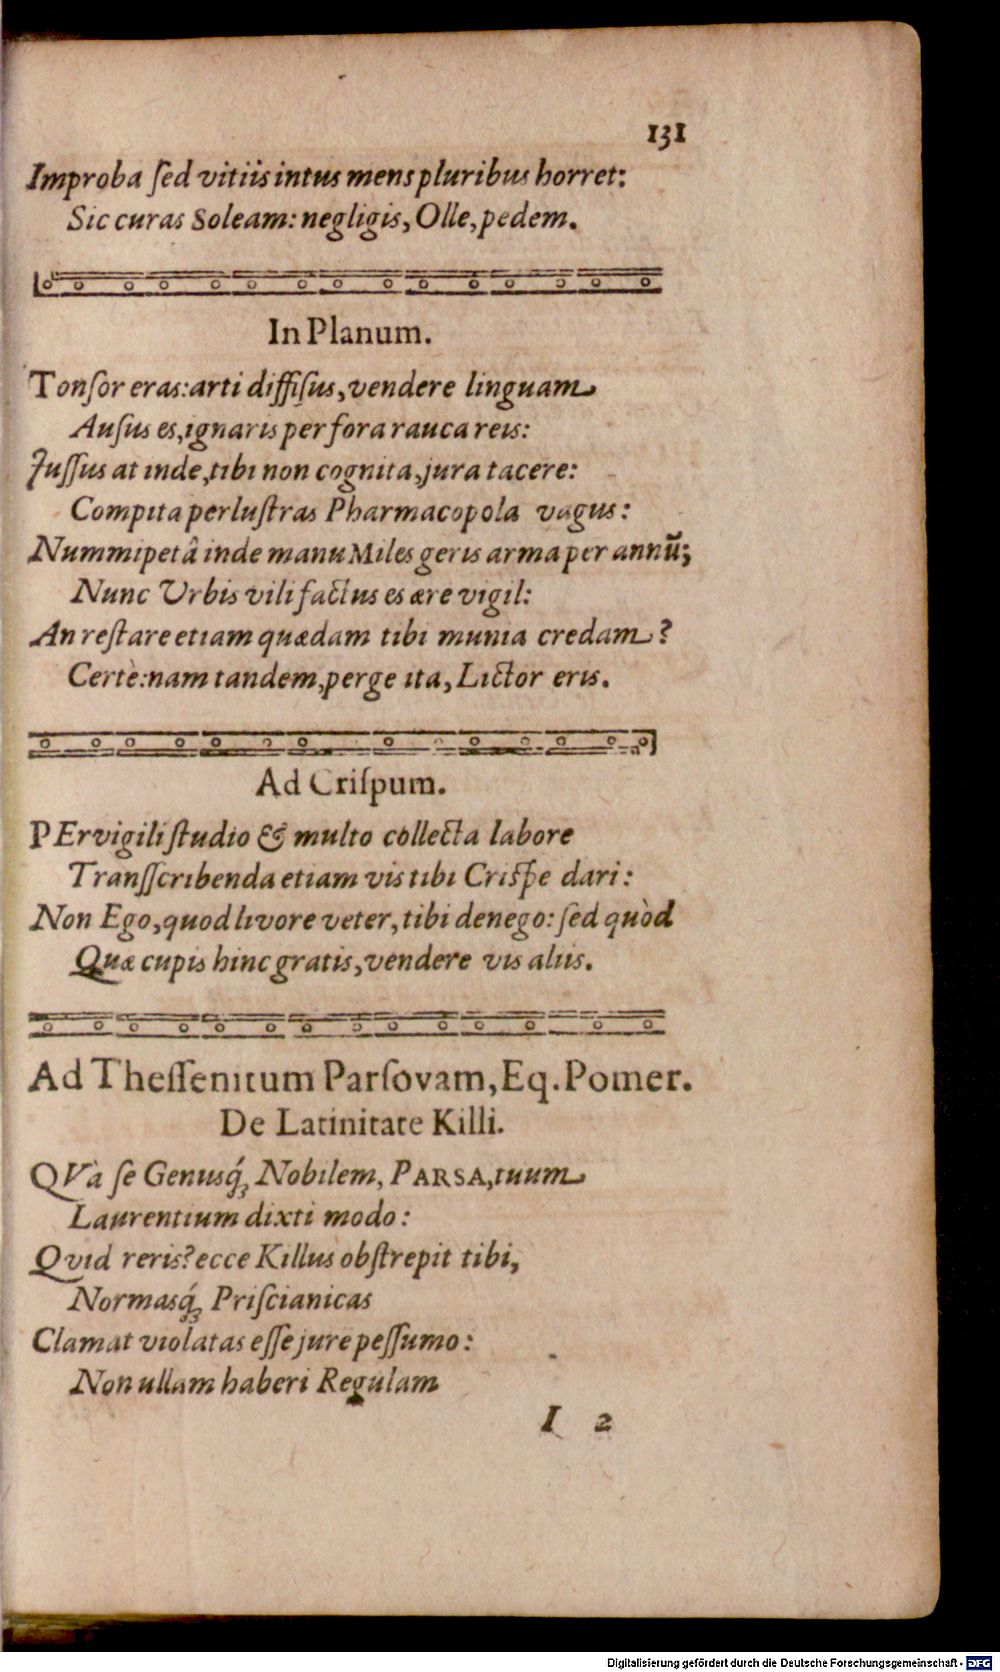 131
Improba ſed vitiis intus mens pluribus horret:
Sic curas Soleam: negligis, Olle, pedem.
In Planum.
Tonſor eras: arti diffiſus, vendere linguam
Auſus es, ignaris per fora rauca reis:
Juſſus at inde, tibi non cognita, jura tacere:
Compita perluſtras Pharmacopola vagus:
Nummipetâ inde manu Miles geris arma per annū;
Nunc Urbis vili factus es ære vigil:
An reſtare etiam quædam tibi munia credam?
Certè: nam tandem, perge ita, Lictor eris.
Ad Criſpum.
PErvigili ſtudio & multo collecta labore
Tranſſcribenda etiam vis tibi Criſpe dari:
Non Ego, quod livore veter, tibi denego: ſed quòd
Quæ cupis hinc gratis, vendere vis aliis.
Ad Theſſenitum Parſovam, Eq. Pomer.
De Latinitate Killi.
QVà ſe Genusq́; Nobilem, PARSA, tuum
Laurentium dixti modo:
Quid reris? ecce Killus obſtrepit tibi,
Normasq́; Priſcianicas
Clamat violatas eſſe jure peſſumo:
Non ullam haberi Regulam
I 2
Digitalisierung gefördert durch die Deutsche Forschungsgemeinschaft - DFG